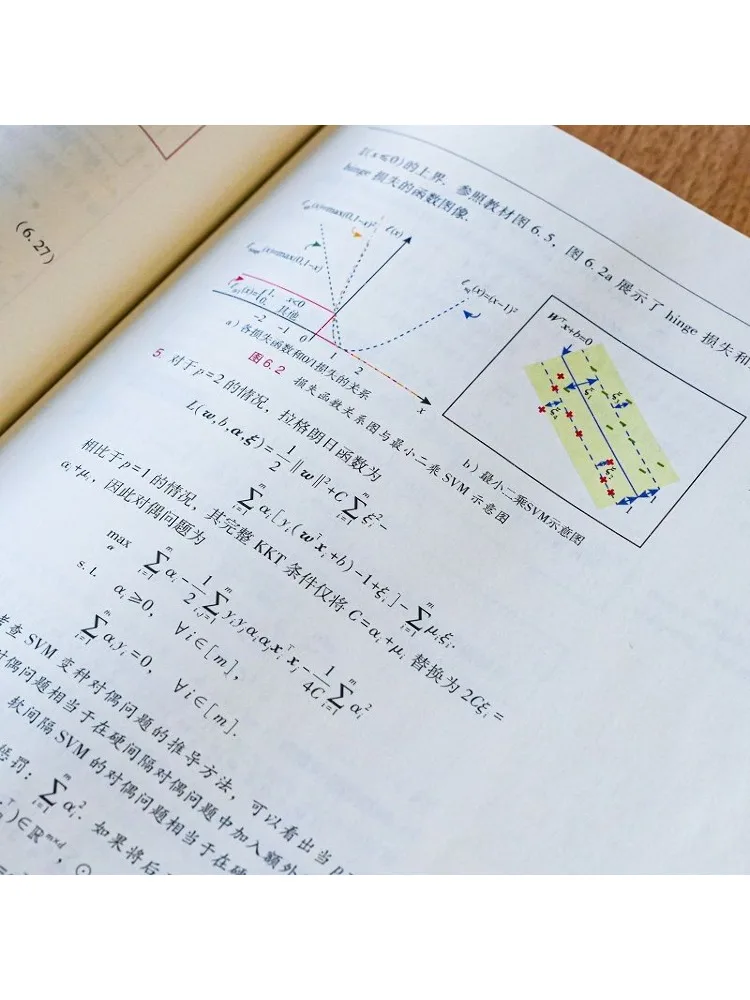 (6.27)
𝕀(x⩽0)的上界. 参照教材图 6.5, 图 6.2a 展示了 hinge 损失和
hinge 损失的函数图像.
(x)=max(0,1-x)²
ℓ(x)
(x)=max(0,1-x)
(x)=(x-1)²
1, x<0
0, 其他
-2 -1 0 1 2
x
a) 各损失函数和0/1损失的关系
wᵀx+b=0
ξ
ξ
ξ
1
1
b) 最小二乘SVM示意图
图6.2 损失函数关系图与最小二乘 SVM 示意图
5. 对于 p=2 的情况, 拉格朗日函数为
L(w,b,α,ξ)=1/2‖w‖²+C∑ᵢ₌₁ᵐξᵢ²-
∑ᵢ₌₁ᵐαᵢ[yᵢ(wᵀxᵢ+b)-1+ξᵢ]-∑ᵢ₌₁ᵐμᵢξᵢ.
相比于 p=1 的情况, 其完整 KKT 条件仅将 C=αᵢ+μᵢ 替换为 2Cξᵢ=
αᵢ+μᵢ, 因此对偶问题为
max α ∑ᵢ₌₁ᵐαᵢ-1/2∑ᵢ,ⱼ₌₁ᵐyᵢyⱼαᵢαⱼxᵢᵀxⱼ-1/4C∑ᵢ₌₁ᵐαᵢ²
s.t. αᵢ⩾0, ∀i∈[m],
∑ᵢ₌₁ᵐαᵢyᵢ=0, ∀i∈[m].
查 SVM 变种对偶问题的推导方法, 可以看出当 p
对偶问题相当于在硬间隔对偶问题中加入额外
软间隔 SVM 的对偶问题相当于在硬
惩罚: ∑ᵢ₌₁ᵐαᵢ². 如果将后
)∈ℝᵐˣᵈ, ⊙